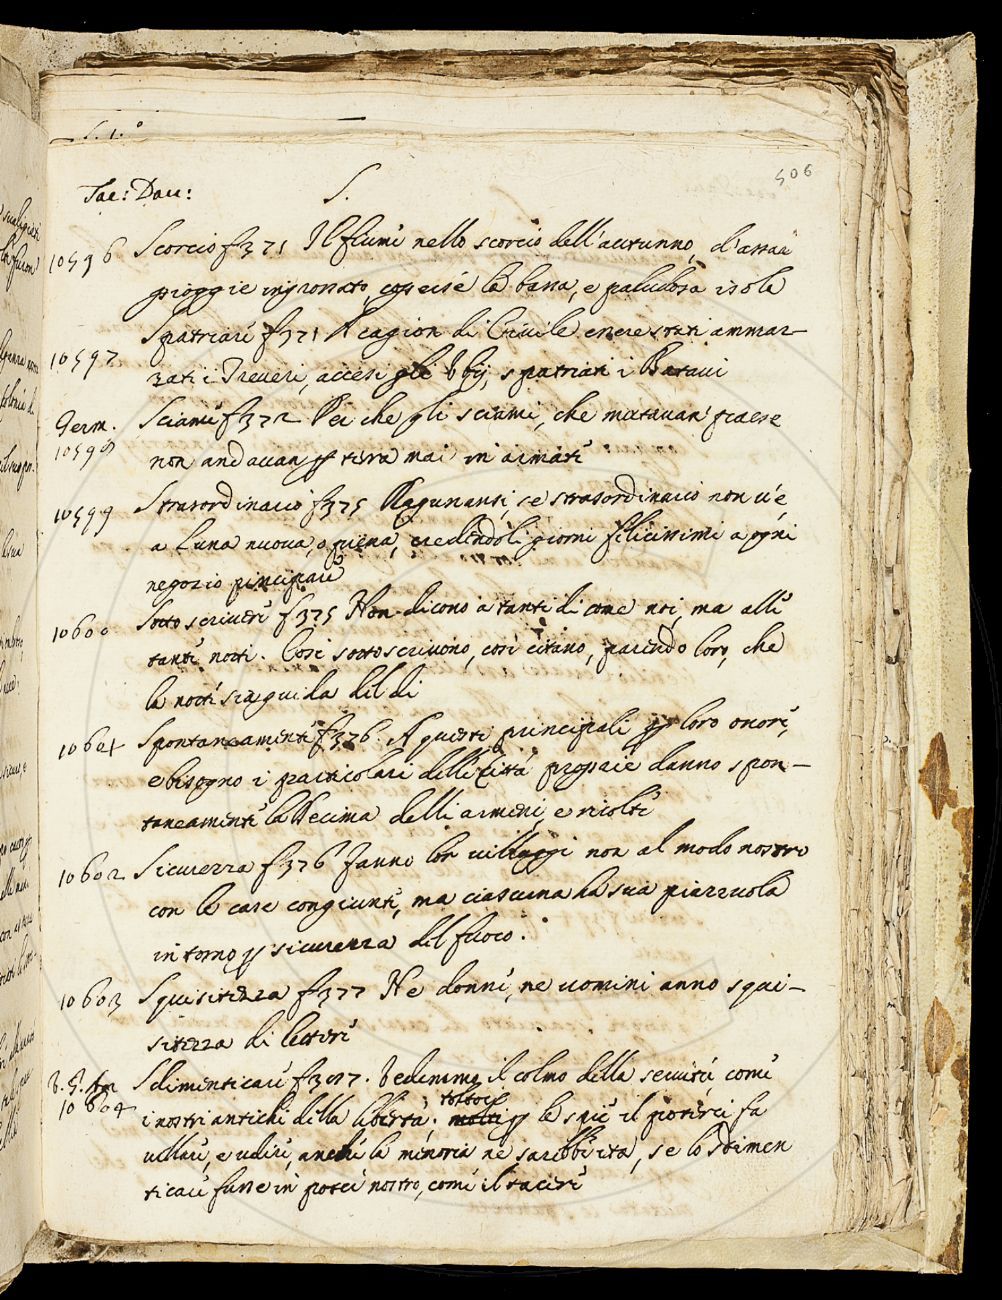 S. 1.°
506
Tac: Dav: S.
10596 Scorcio f 371 Il fiume nello scorcio dell'autunno, d'assai
pioggie ingrossato, coperse la bassa, e paludosa isola
10597 Spatriare f 371 A cagion di Civile essere stati ammaz-
zati i Treveri, accesi gli Ubij, spatriati i Batavi
Germ.
10598 Sciame f 372 Per che gli sciami, che mutavan paese
non andavan p terra mai in armate
10599 Straordinario f 375 Ragunansi, se straordinario non v'è,
a Luna nuova, o piena, credendoli giorni felicissimi a ogni
negozio principiare
10600 Sotto scrivere f 375 Non dicono a tanti di come noi, ma alle
tante notti. Così sottoscrivono, così citano, parendo loro, che
la notte sia guida del di
10601 Spontaneamente f 376. A questi principali p loro onore,
e bisogno i particolari delle Città proprie danno spon-
taneamente la Decima delli armenti, e ricolte
10602 Sicurezza f 376 Fanno lor villaggi non al modo nostro
con le case congiunte, ma ciascuna ha sua piazzuola
intorno p sicurezza del fuoco.
10603 Squisitezza f 377 Ne donne, ne uomini anno squi-
sitezza di lettere
V. G. Agr
10604 Sdimenticare f 387. Vedemmo il colmo della servitù come
i nostri antichi della libertà; toltoci p le spie il potere fa
vellare, e udire, anche la memoria ne sarebbe ita, se lo sdimen
ticare fusse in poter nostro, come il tacere